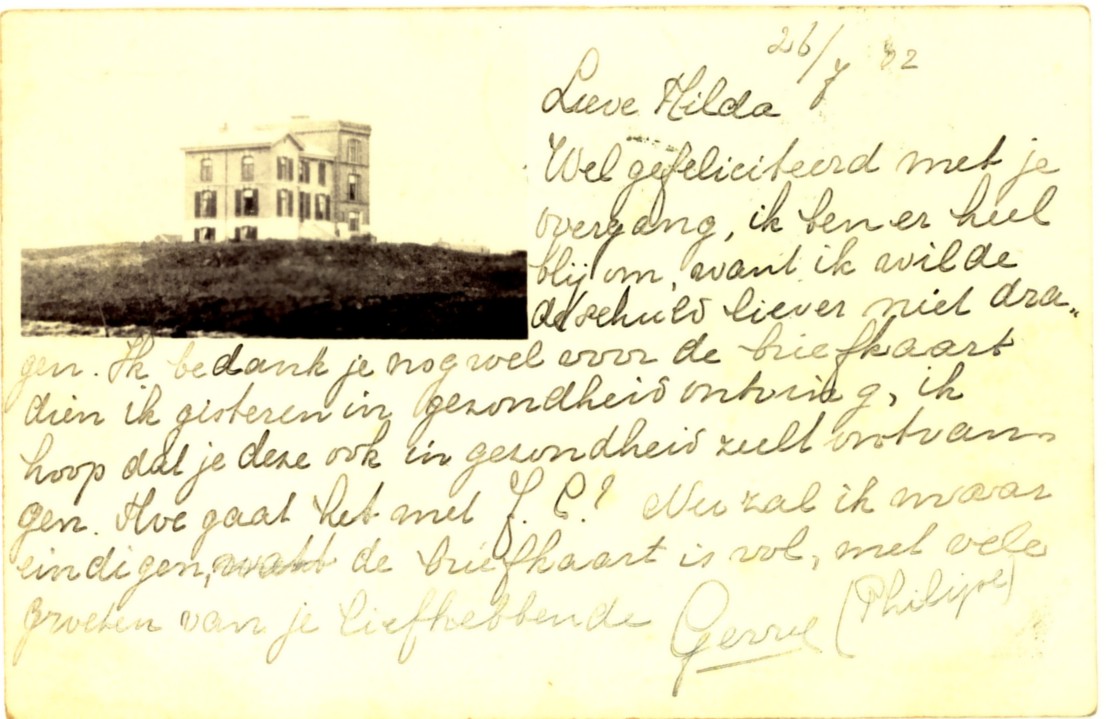 26/7 02
Lieve Hilda
Wel gefeliciteerd met je
overgang, ik ben er heel
blij om, want ik wilde
de schuld liever niet dra„
gen. Ik bedank je nog wel voor de briefkaart
dien ik gisteren in gezondheid ontving, ik
hoop dat je deze ook in gezondheid zult ontvan„
gen. Hoe gaat het met J. C.? Nu zal ik maar
eindigen, want de briefkaart is vol, met vele
groeten van je liefhebbende Gerrie (Philipse)